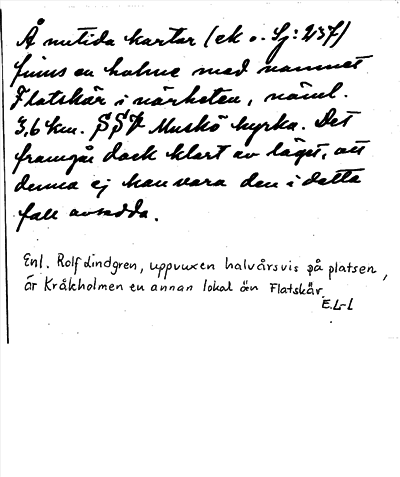 Å nutida kartor (ek o. Sj: 237)
finns en holme med namnet
Flatskär i närheten, näml.
3,6 km. SSV Muskö kyrka. Det
framgår dock klart av läget, att
denna ej kan vara den i detta
fall avsedda.
Enl. Rolf Lindgren, uppvuxen halvårsvis på platsen,
är Kråkholmen en annan lokal än Flatskär.
E.L-L